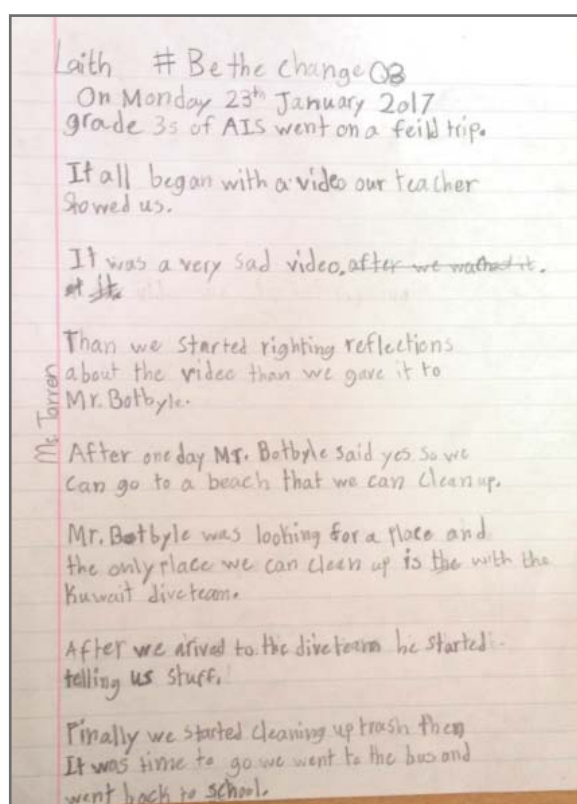 Laith # Be the change Q8
On Monday 23th January 2017
grade 3s of AIS went on a feild trip.
It all began with a video our teacher
Showed us.
It was a very sad video. after we wathed it.
Than we started righting reflections
about the video than we gave it to
Mr. Botbyle.
Ms. Tarren
After one day Mr. Botbyle said yes so we
can go to a beach that we can clean up.
Mr. Botbyle was looking for a place and
the only place we can clean up is the with the
Kuwait dive team.
After we arived to the dive team he started
telling us stuff.
Finally we started cleaning up trash then
It was time to go we went to the bus and
went back to school.